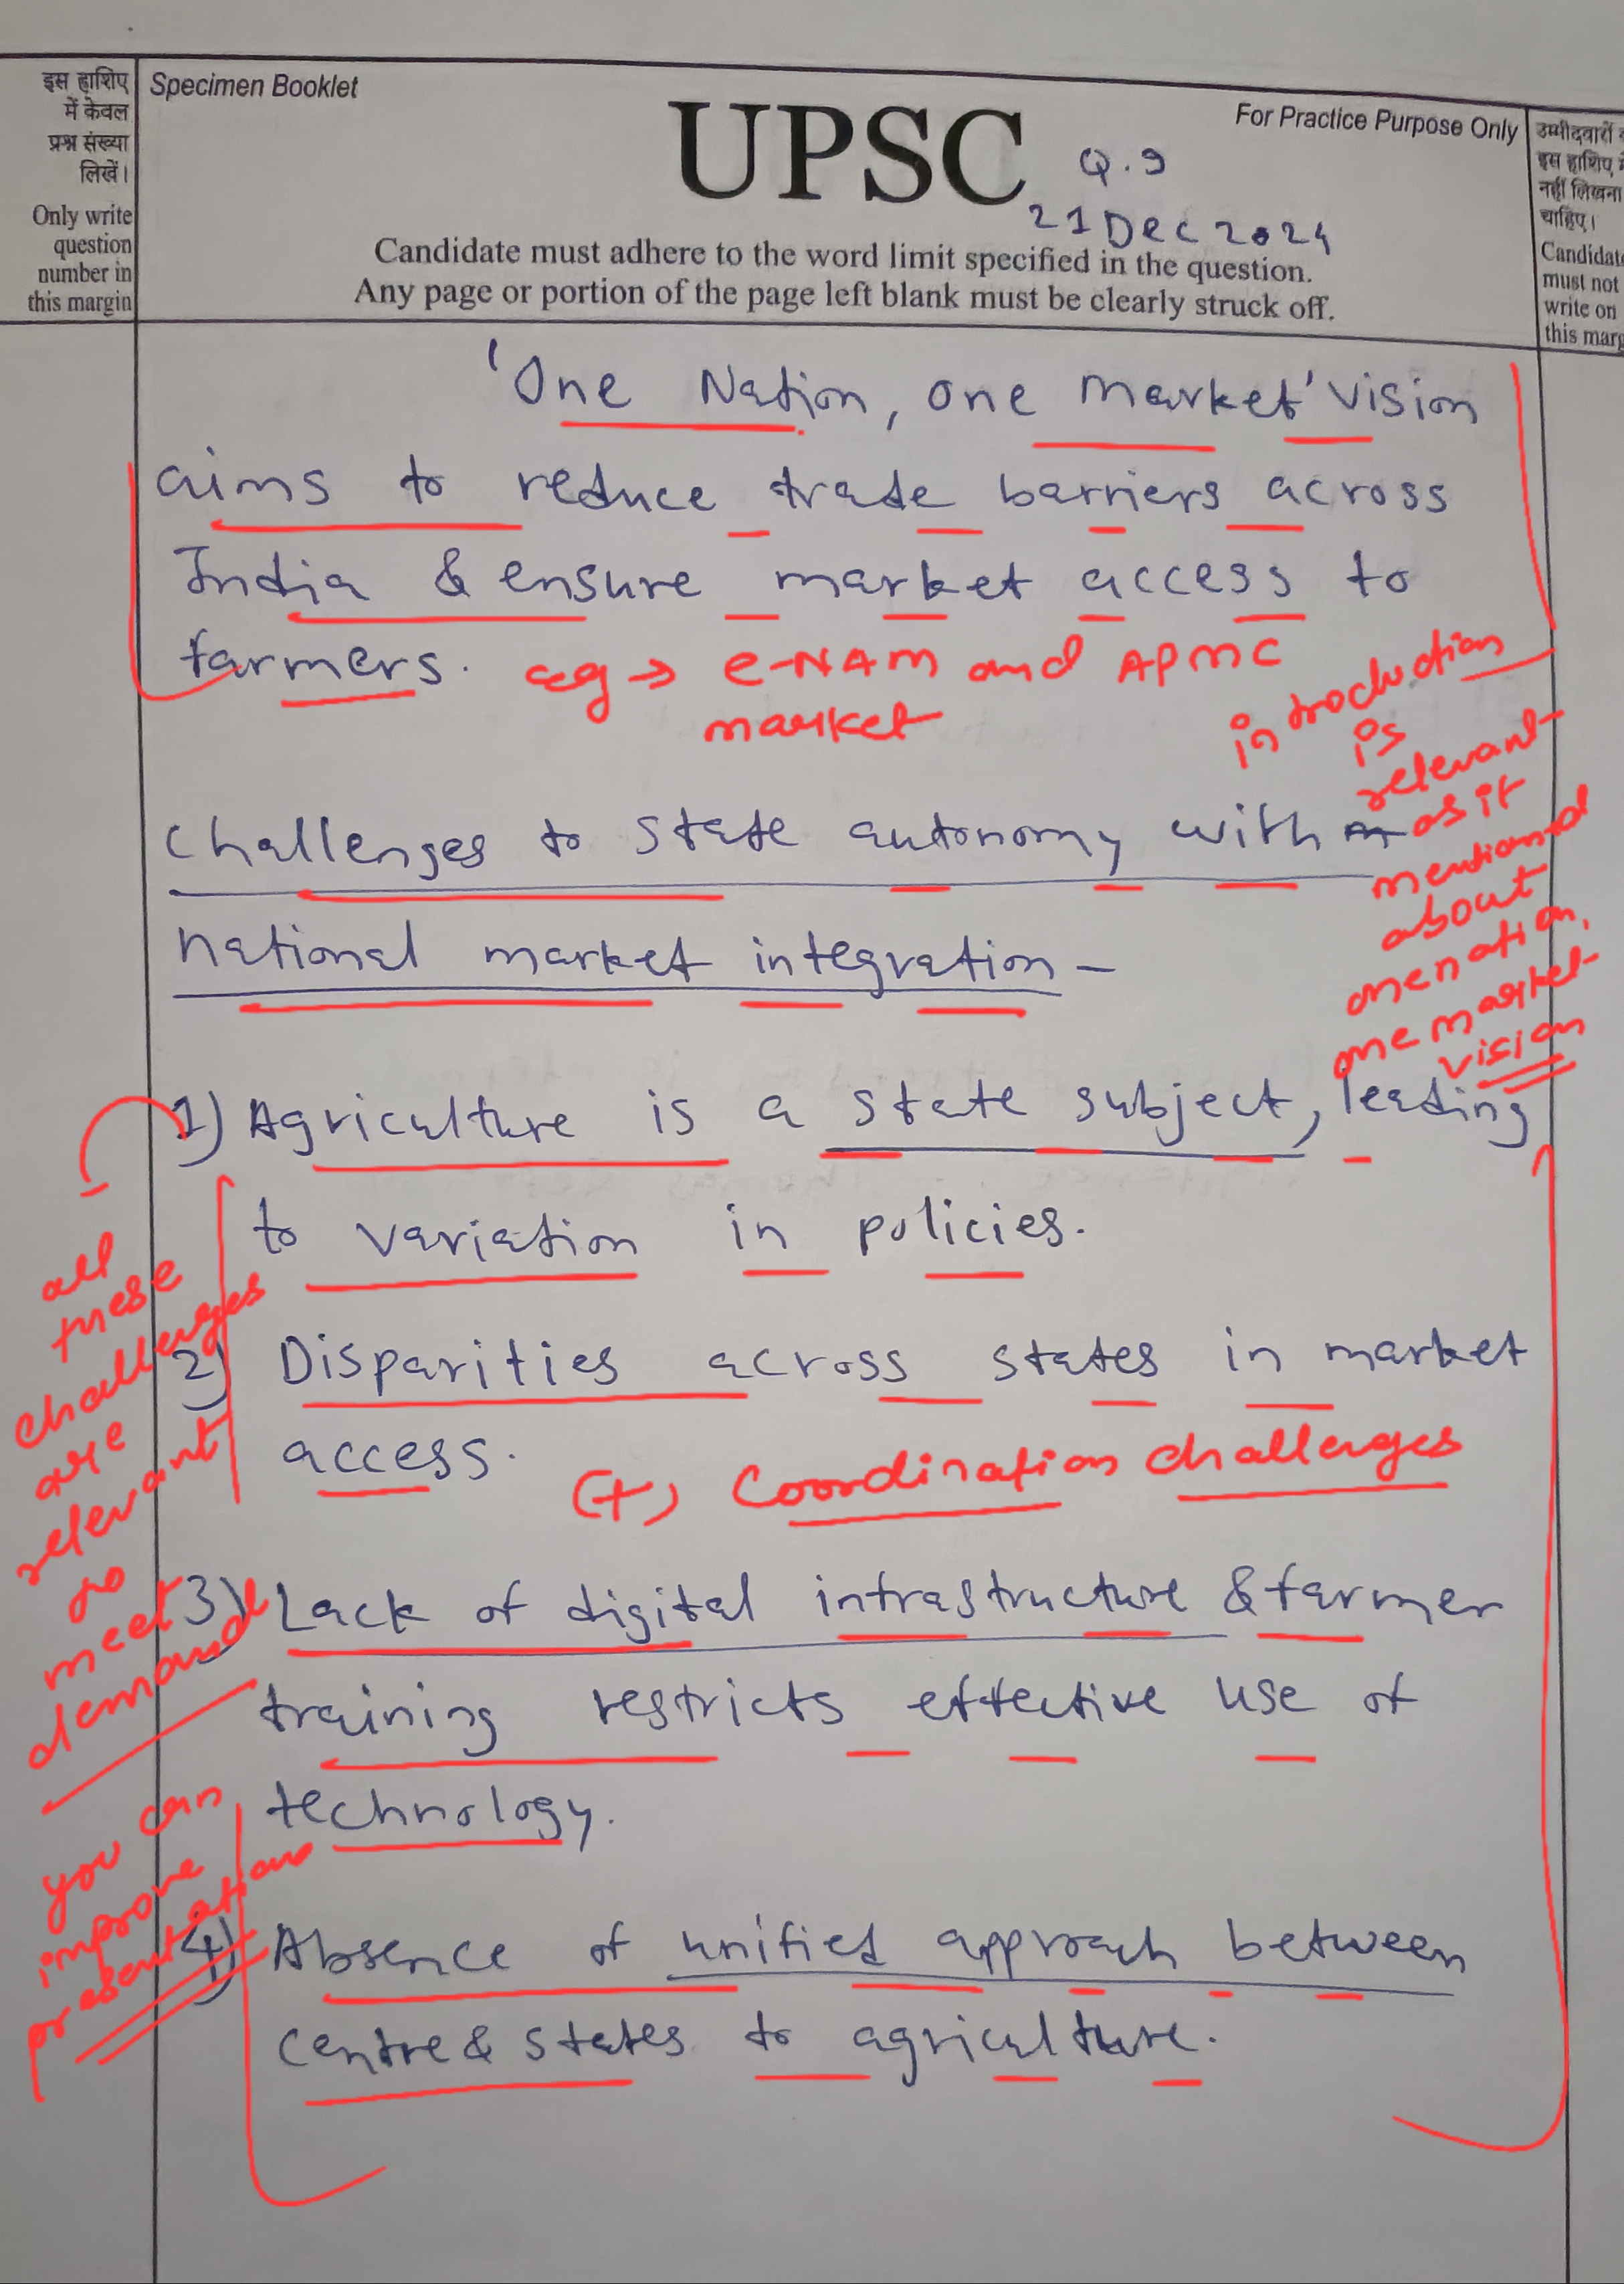 इस हाशिए
में केवल
प्रश्न संख्या
लिखें।
Only write
question
number in
this margin
Specimen Booklet
UPSC
For Practice Purpose Only
Q.9
21 Dec 2024
Candidate must adhere to the word limit specified in the question.
Any page or portion of the page left blank must be clearly struck off.
उम्मीदवारों
इस हाशिए
नहीं लिखना
चाहिए।
Candidate
must not
write on
this marg
'One Nation, one market' vision
aims to reduce trade barriers across
India & ensure market access to
farmers.
eg → e-NAM and APMC
market
introduction
is
relevant
as it
mentioned
about
one nation,
one market
vision
Challenges to state autonomy with
national market integration –
1) Agriculture is a state subject, leading
to variation in policies.
2) Disparities across states in market
access.
(+) Coordination challenges
3) Lack of digital infrastructure & farmer
training restricts effective use of
technology.
4) Absence of unified approach between
centre & states to agriculture.
all
these
challenges
are
relevant
to
meet
demand
you can
improve
presentation